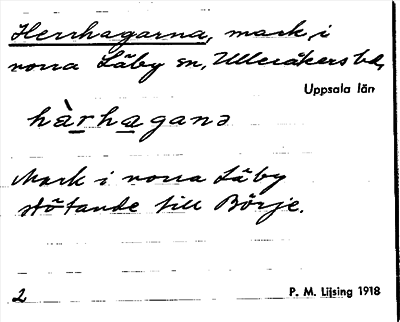 Herrhagarna, mark i
norra Läby sn, Ulleråkers hd,
Uppsala län
hàrhaganə
Mark i norra Läby
stötande till Börje.
2
P. M. Liljsing 1918